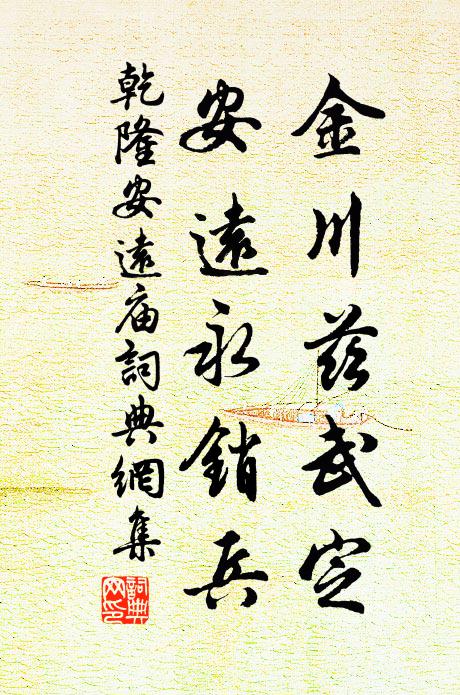 金川茲武定
安遠永銷兵
乾隆安遠庙詞典網集
詞典网印